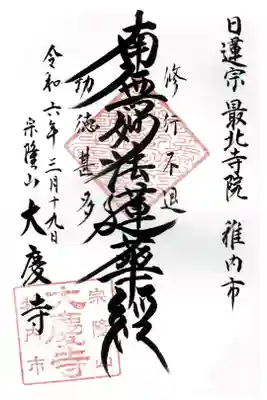 日蓮宗 最北寺院 稚内市
修行不退
南無妙法蓮華経
功徳甚多
令和六年三月十九日
宗隆山 大慶寺
宗隆山
大慶寺
稚内市